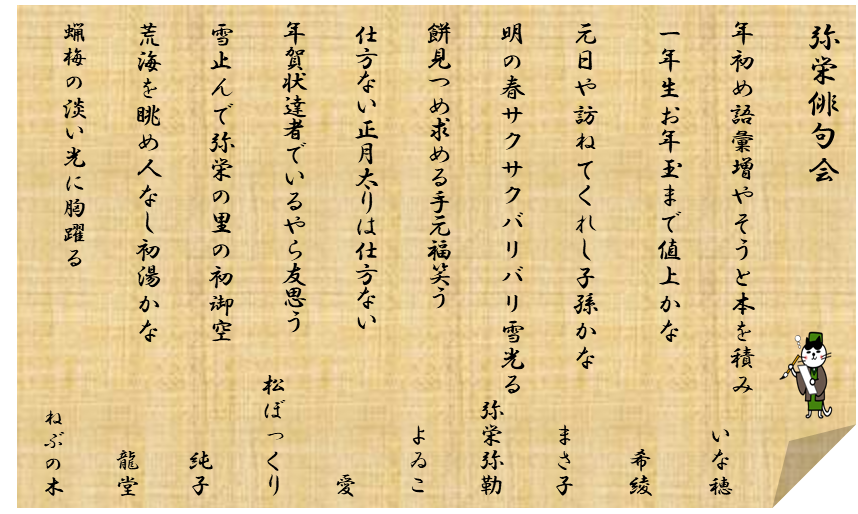 弥栄俳句会
年初め語彙増やそうと本を積み
いな穂
一年生お年玉まで値上かな
希綾
元日や訪ねてくれし子孫かな
まさ子
明の春サクサクバリバリ雪光る
弥栄弥勒
餅見つめ求める手元福笑う
よゐこ
仕方ない正月太りは仕方ない
愛
年賀状達者でいるやら友思う
松ぼっくり
雪止んで弥栄の里の初御空
純子
荒海を眺め人なし初湯かな
龍堂
蝋梅の淡い光に胸躍る
ねぶの木